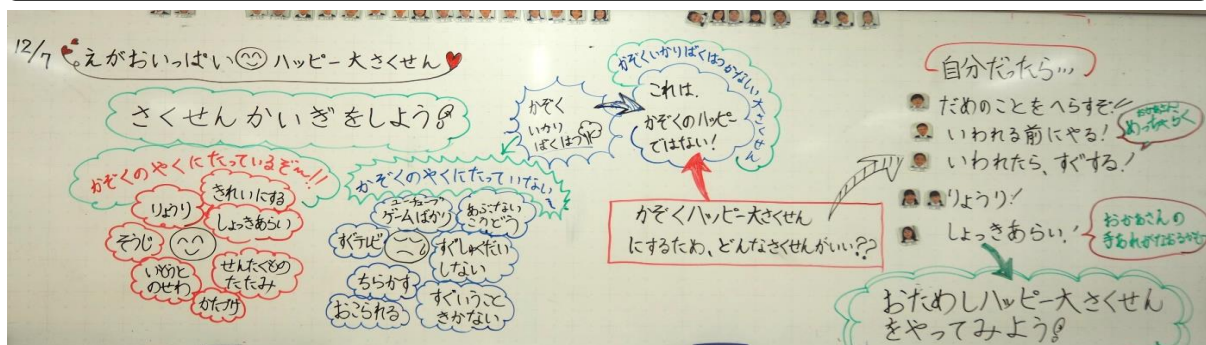 12/7 えがおいっぱい ハッピー大さくせん
さくせんかいぎをしよう!
かぞくのやくにたっているぞ〜!!
きれいにする
りょうり
しょっきあらい
そうじ
いもうと
のせわ
せんたくもの
たたみ
かたづけ
かぞくのやくにたっていない
ユーチューブ
ゲームばかり
あぶない
こうどう
すぐテレビ
すぐしゅくだい
しない
ちらかす
おこられる
すぐいうこと
きかない
かぞく
いかり
ばくはつ
かぞくいかりばくはつかないい大さくせん
これは、
かぞくのハッピー
ではない!
かぞくハッピー大さくせん
にするため、どんなさくせんがいい??
自分だったら…
だめのことをへらすぞ!
いわれる前にやる!
いわれたら、すぐする!
おかあさん
めっちゃらく
りょうり!
しょっきあらい!
おかあさんの
手あれがなおるかも
おためしハッピー大さくせん
をやってみよう!